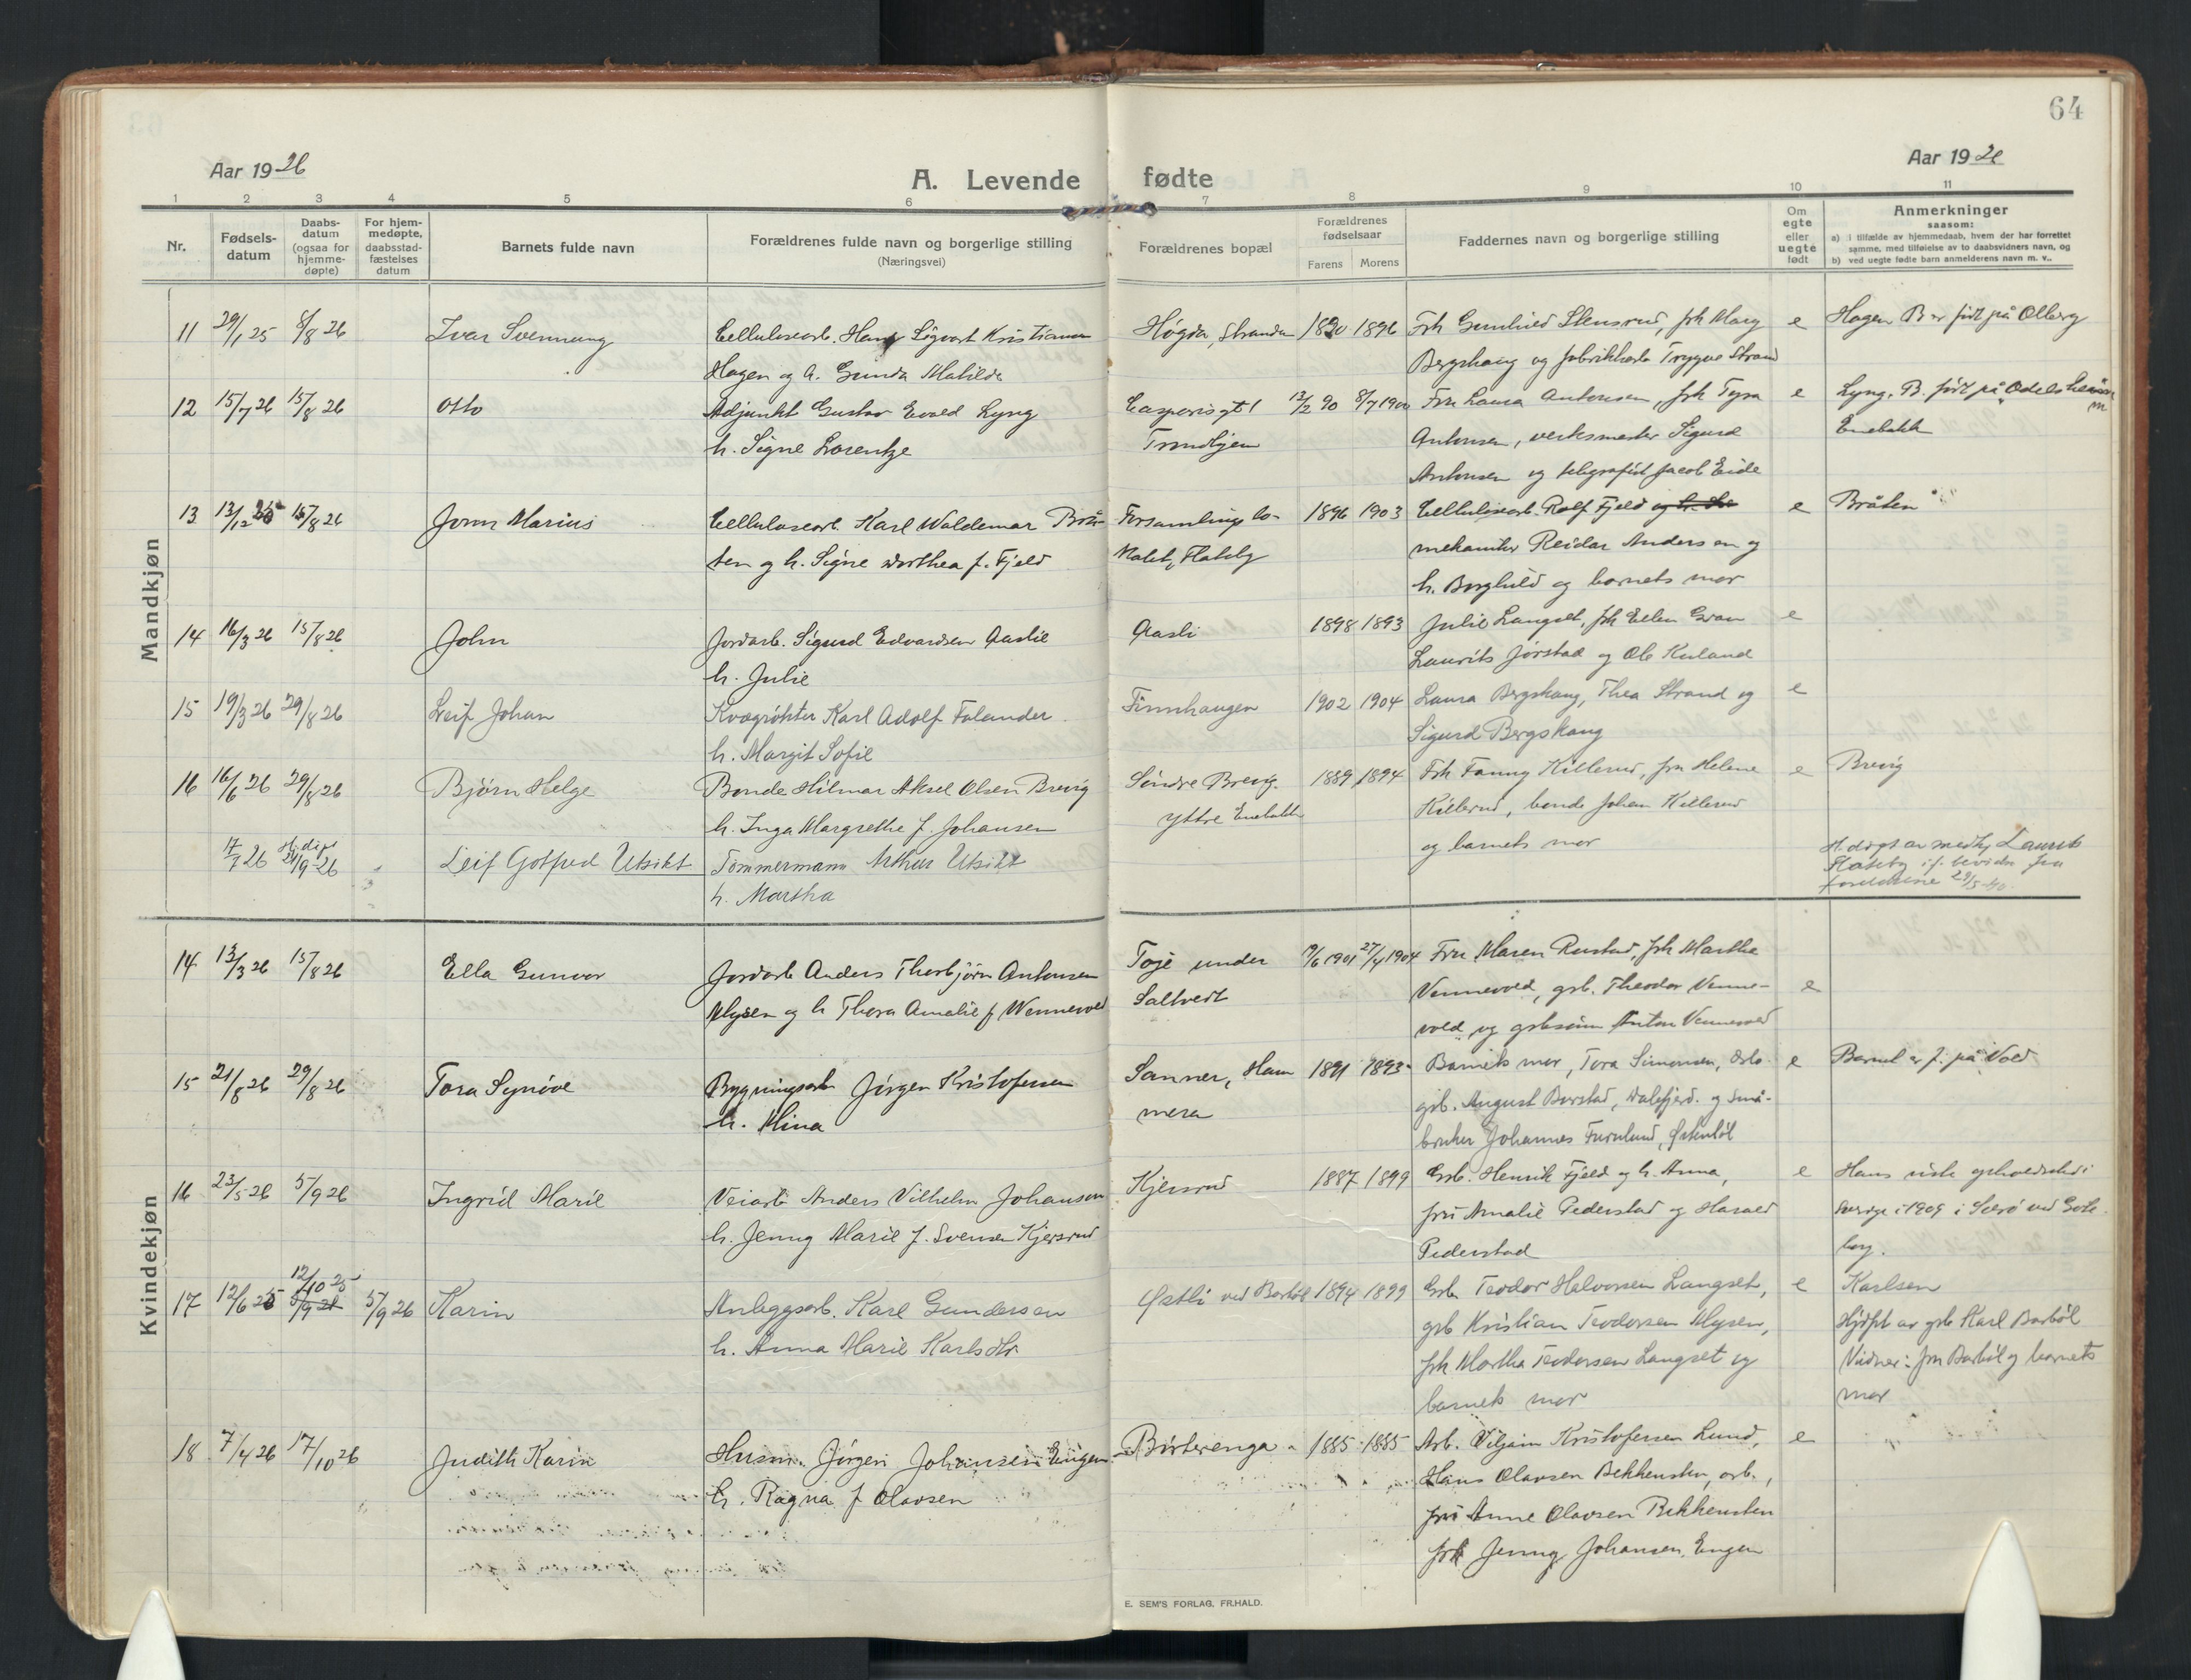 64
Aar 1926
Aar 1926
A. Levende fødte
1 2 3 4 5 6 7 8 9 10 11
Nr.
Fødsels-
datum
Daabs-
datum
(ogsaa for
hjemme-
døpte)
For hjem-
medøpte,
daabsstad-
fæstelses
datum
Barnets fulde navn
Forældrenes fulde navn og borgerlige stilling
(Næringsvei)
Forældrenes bopæl
Forældrenes
fødselsaar
Farens Morens
Faddernes navn og borgerlige stilling
Om
egte
eller
uegte
født
Anmerkninger
saasom:
a) i tilfælde av hjemmedaab, hvem der har forrettet
samme, med tilføielse av to daabsvidners navn, og
b) ved uegte fødte barn anmelderens navn m. v..
Mandkjøn
11 29/1 25 8/8 26 Ivar Svennung Cellulosearb. Hans Sigvart Kristiansen Høgda, Stranda 1890 1896 Frk Gunhild Stensrud, frk Marg e Hagen B er født på Olberg
Hagen og h. Gunda Mathilde Bergskaug og fabrikkarb Trygve Strand
12 15/7 26 15/8 26 Otto Adjunkt Gustav Evald Lyng Casparisgt 1 13/2 90 8/7 1900 Fru Laura Antonsen, frk Tyra e Lyng. B. født på
h. Signe Lorentze Trondhjem Antonsen, verksmester Sigurd Enebakk
Antonsen og telegrafist Jacob Eide
13 13/12 25 15/8 26 Jonn Marius Cellulosearb Karl Waldemar Brå- Forsamlingslo- 1896 1903 Cellulosearb. Rolf Fjeld og h. e Bråten
ten og h. Signe Dorthea f. Fjeld kalet, Flateby mekaniker Reidar Andersen og
h. Borghild og barnets mor
14 16/3 26 15/8 26 John Jordarb. Sigurd Edvardsen Aaslie Aasli 1898 1893 Julie Langset, frk Ellen Gran e
h. Julie Laurits Jørstad og Ole Kuland
15 19/3 26 29/8 26 Leif Johan Kvægrøkter Karl Adolf Falander Finnhaugen 1902 1904 Laura Bergskaug, Thea Strand og e
h. Margit Sofie Sigurd Bergskaug
16 16/6 26 29/8 26 Bjørn Helge Bonde Hilmar Aksel Olsen Brevig Søndre Brevig. 1889 1894 Frk Fanny Killerud, fru Helene e Brevig
h. Inga Margrethe f. Johansen Yttre Enebakk Killerud, bonde Johan Killerud
og barnets mor
17/7 26 H.døpt 24/9 26 Leif Gotfred Utsikt Tømmermann Arthur Utsikt H.døpt av Laurits
h. Martha Flateby fra
foreldrene 29/5-40.
Kvindekjøn
14 13/3 26 15/8 26 Ella Gunvor Jordarb Anders Thorbjørn Antonsen Toje under 1901 27/4 1904 Fru Maren Rustad, frk Marthe
Mysen og h Thora Amalie f Wennevold Saltvedt Vennevold, grb. Theodor Venne- e
vold og grbsønn Anton Vennevold
15 21/8 26 29/8 26 Tora Synøve Bygningsarb Jørgen Kristofersen Sanner, Ham 1891 1893 Barnets mor, Tora Simonsen, Oslo. e Barnet er f. på Vold
h. Mina mera grb. August Borstad, Dalefjerd. og små-
bruker Johannes Furulund,
16 23/5 26 5/9 26 Ingrid Marie Veiarb Anders Vilhelm Johansen Kjersrud 1887 1899 Grb. Henrik Fjeld og h. Anna, e Hans siste opholdssted i
h. Jenny Marie f. Svensen Kjersrud fru Amalie Pederstad og Harald Sverige i 1909 i ved Gote
Pederstad borg.
17 12/6 25 12/10 25 5/9 26 5/9 26 Karin Anleggsarb. Karl Gundersen Østli ved Borbøl 1894 1899 Grb. Teodor Halvorsen Langset, e Karlsen
h. Anna Marie Karlsdtr grb Kristian Teodorsen Mysen, Hjdøpt av grb Karl Borbøl
frk Martha Teodorsen Langset og Vidner: fru Borbøl og barnets
barnets mor mor
18 7/4 26 17/10 26 Judith Karin Husm. Jørgen Johansen Engen Børterenga 1885 1885 Arb. Viljam Kristofersen Lund, e
h. Ragna f Olavsen Hans Olavsen Bekkensten, arb.,
fru Anne Olavsen Bekkensten
frk Jenny Johansen Engen
E. SEM'S FORLAG, FR.HALD.